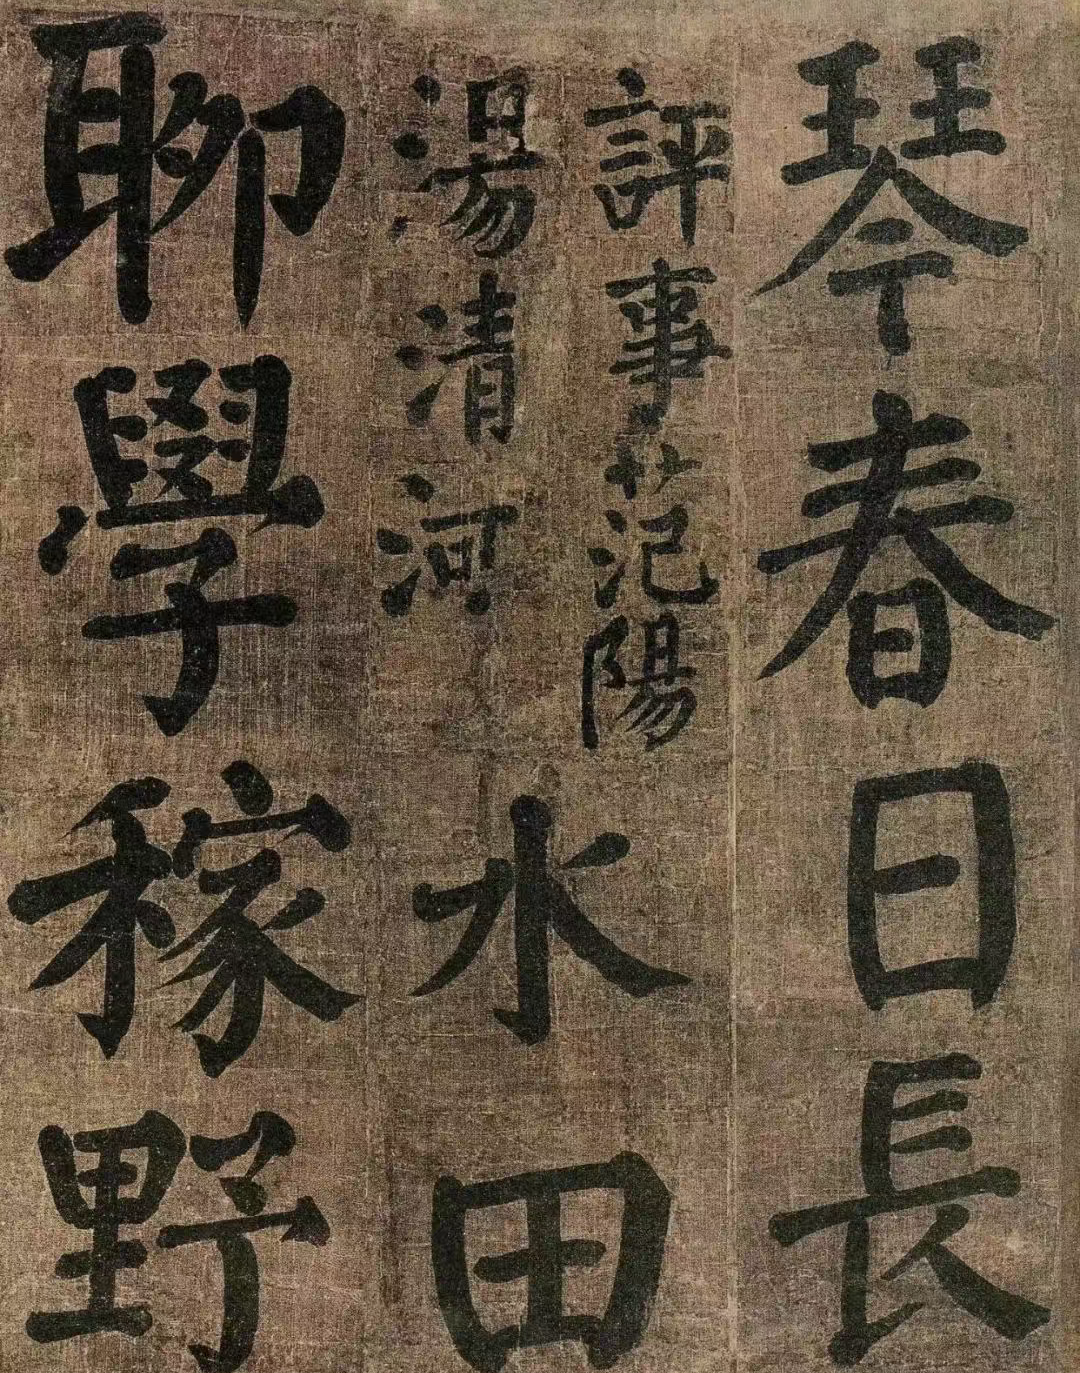 琴春日長
評事范陽
湯清河
水田
聊學稼野